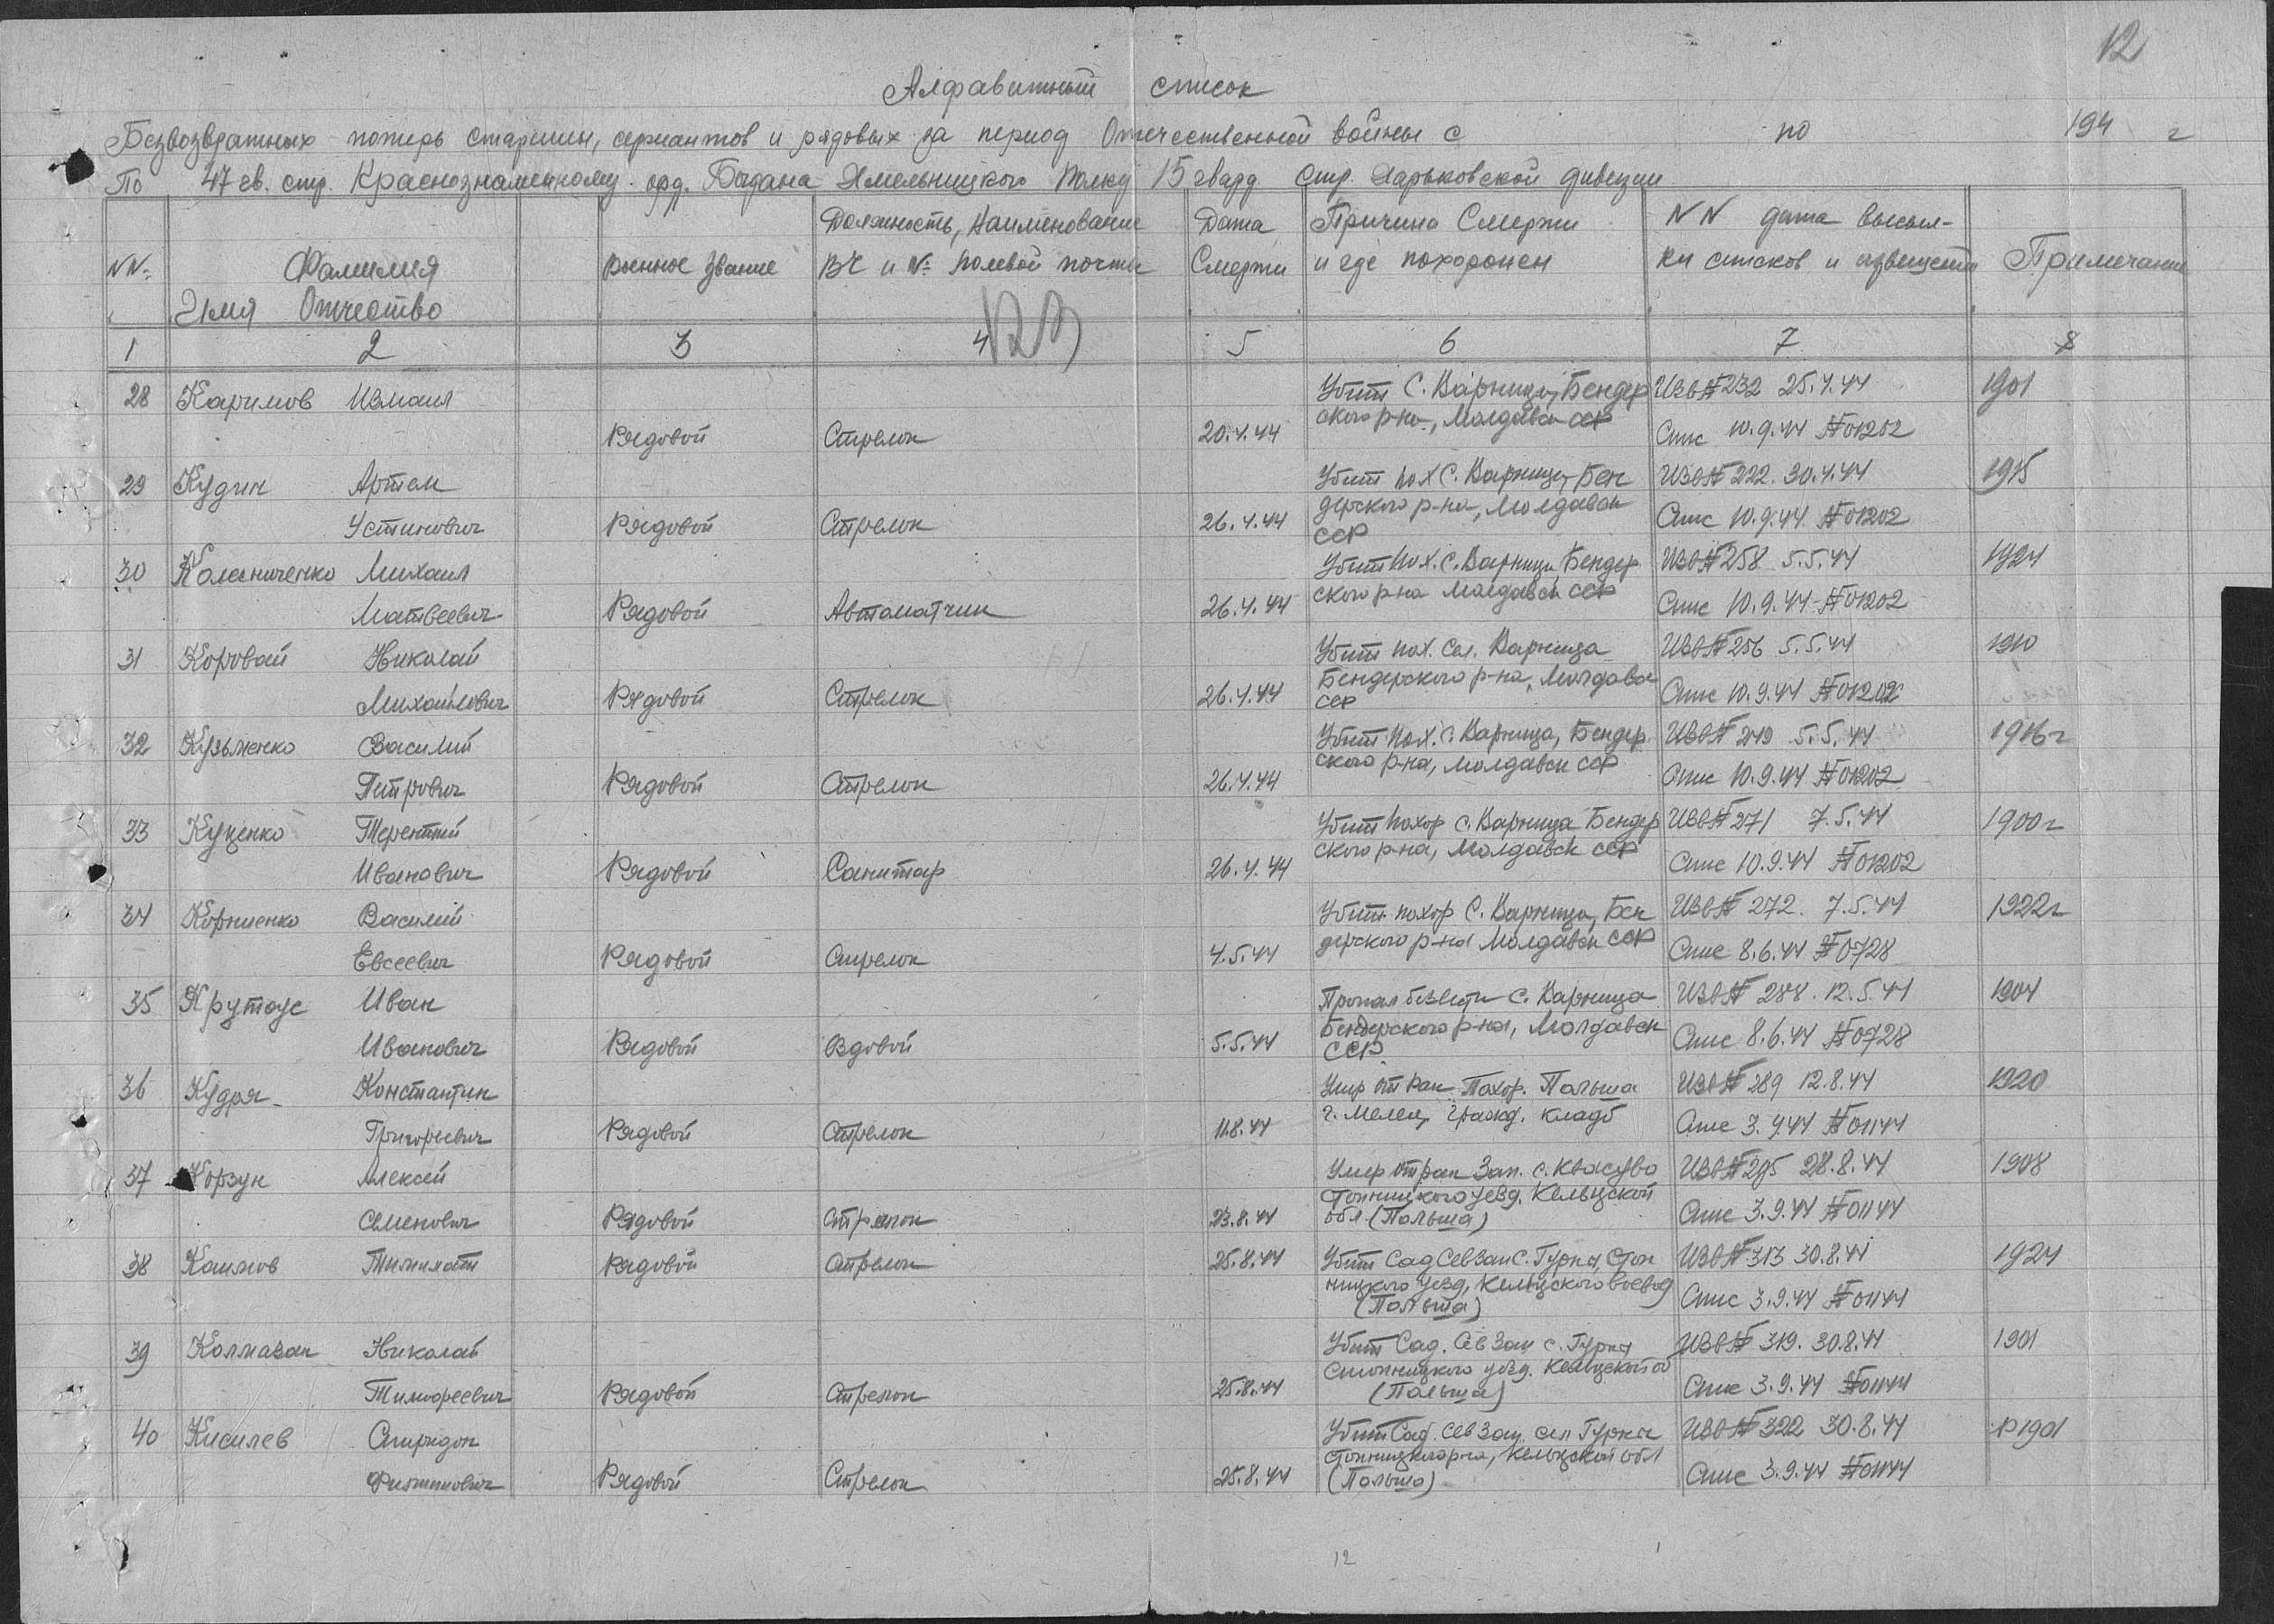 12
Алфавитный список
Безвозвратных потерь старшин, сержантов и рядовых за период Отечественной войны с по 194 г
По 47 гв. стр. Краснознаменному орд. Богдана Хмельницкого Полку 15 гвард стр. Харьковской дивизии
NN: Фамилия Имя Отчество
Военное Звание
Должность, Наименование ВЧ и №: полевой почты
Дата Смерти
Причина Смерти и где похоронен
NN дата высыл-
ки списков и извещений
Примечание
1 2 3 4 5 6 7 8
28 Каримов Измаил Убит С. Варница, Бендер ИЗВ № 232 25.4.44 1901
Рядовой Стрелок 20.4.44 ского р-на, Молдавск ССР Спис 10.9.44 № 01202
29 Кудин Артем Убит пох С. Варница, Бен ИЗВ № 222. 30.4.44 1915
Устинович Рядовой Стрелок 26.4.44 дерского р-на, Молдавск Спис 10.9.44 № 01202
ССР
30 Колесниченко Михаил Убит пох. С. Варница Бендер ИЗВ № 258 5.5.44 1924
Матвеевич Рядовой Автоматчик 26.4.44 ского р-на Молдавск ССР Спис 10.9.44 № 01202
31 Коровай Николай Убит пох. Сел. Варница ИЗВ № 256 5.5.44 1910
Михайлович Рядовой Стрелок 26.4.44 Бендерского р-на, Молдавск Спис 10.9.44 № 01202
ССР
32 Кузьменко Василий Убит пох. С. Варница, Бендер ИЗВ № 5.5.44 1916 г
Петрович Рядовой Стрелок 26.4.44 ского р-на, Молдавск ССР Спис 10.9.44 № 01202
33 Куценко Терентий Убит похор с. Варница Бендер ИЗВ № 271 7.5.44 1900 г
Иванович Рядовой Санитар 26.4.44 ского р-на, Молдавск ССР Спис 10.9.44 № 01202
34 Корниенко Василий Убит похор С. Варница, Бен ИЗВ № 272. 7.5.44 1922 г
Евсеевич Рядовой Стрелок 4.5.44 дерского р-на Молдавск ССР Спис 8.6.44 № 0728
35 Крутоус Иван Пропал безвести С. Варница ИЗВ № 288. 12.5.44 1904
Иванович Рядовой Ездовой 5.5.44 Бендерского р-на, Молдавск Спис 8.6.44 № 0728
ССР
36 Кудря Константин Умер от ран Похор. Польша ИЗВ № 289 12.8.44 1920
Григорьевич Рядовой Стрелок 11.8.44 г. Мелец, гражд. кладб Спис 3.9.44 № 01144
37 Корзун Алексей Умер от ран Зап. с. ИЗВ № 28.8.44 1908
Семенович Рядовой Стрелок 23.8.44 Стопницкого уезд. Кельцской Спис 3.9.44 № 01144
обл (Польша)
38 Рядовой Стрелок 25.8.44 Убит Сад Сев Зап С. Гурки, Стоп ИЗВ № 313 30.8.44 1924
ницкого уезд, Кельцского воевод Спис 3.9.44 № 01144
(Польша)
39 Колмазан Николай Убит Сад. Сев Зап с. Гурки ИЗВ № 319. 30.8.44 1901
Тимофеевич Рядовой Стрелок 25.8.44 Стопницкого уезд. Кельцской об Спис 3.9.44 № 01144
(Польша)
40 Киселев Спиридон Убит Сад. Сев Зап. сел Гурки ИЗВ № 322 30.8.44 1901
Филиппович Рядовой Стрелок 25.8.44 Стопницкого р-на, Кельцской обл Спис 3.9.44 № 01144
(Польша)
12